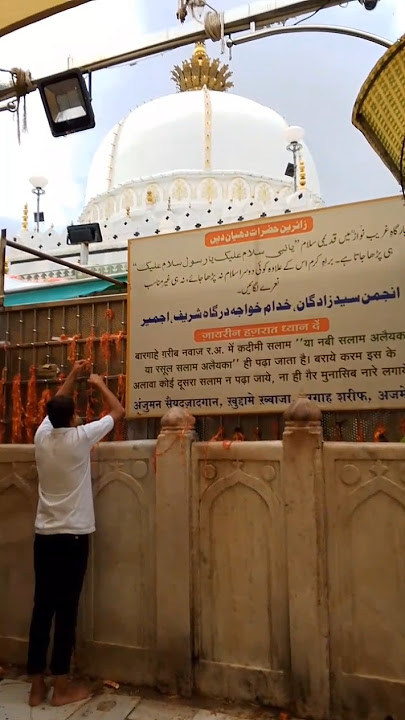 زائرین حضرات دھیان دیں
بارگاہ غریب نوازؒ میں قدیمی سلام "یا نبی سلام علیک یا رسول سلام علیک"
ہی پڑھا جاتا ہے۔ براہ کرم اس کے علاوہ کوئی دوسرا سلام نہ پڑھا جائے، نہ ہی غیر مناسب
نعرے لگائیں۔
انجمن سیدزادگان، خدام خواجہ درگاہ شریف، اجمیر
जायरीन हज़रात ध्यान दें
बारगाहे ग़रीब नवाज र.अ. में कदीमी सलाम "या नबी सलाम अलैयका
या रसूल सलाम अलैयका" ही पढ़ा जाता है। बराये करम इस के
अलावा कोई दूसरा सलाम न पढ़ा जाये, ना ही ग़ैर मुनासिब नारे लगाये
अंजुमन सैयदज़ादगान, ख़ुद्दामे ख़्वाजा, दरगाह शरीफ, अजमे